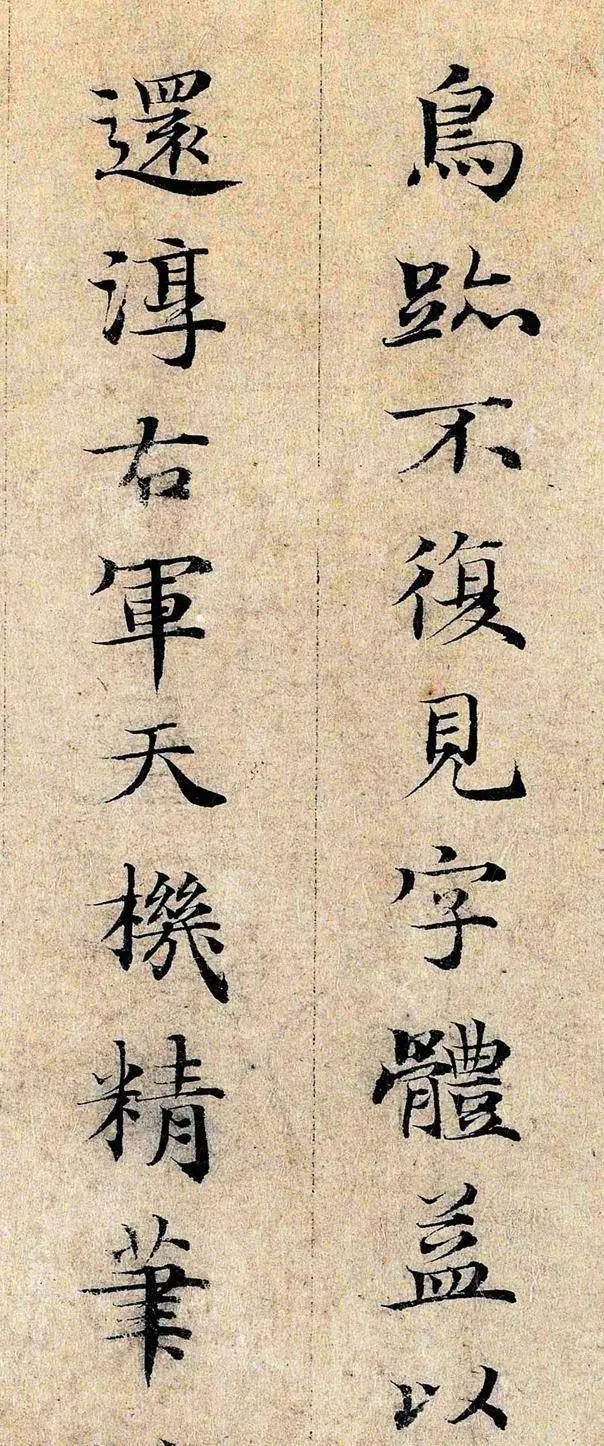 鳥跡不復見字體益以
還淳右軍天機精筆